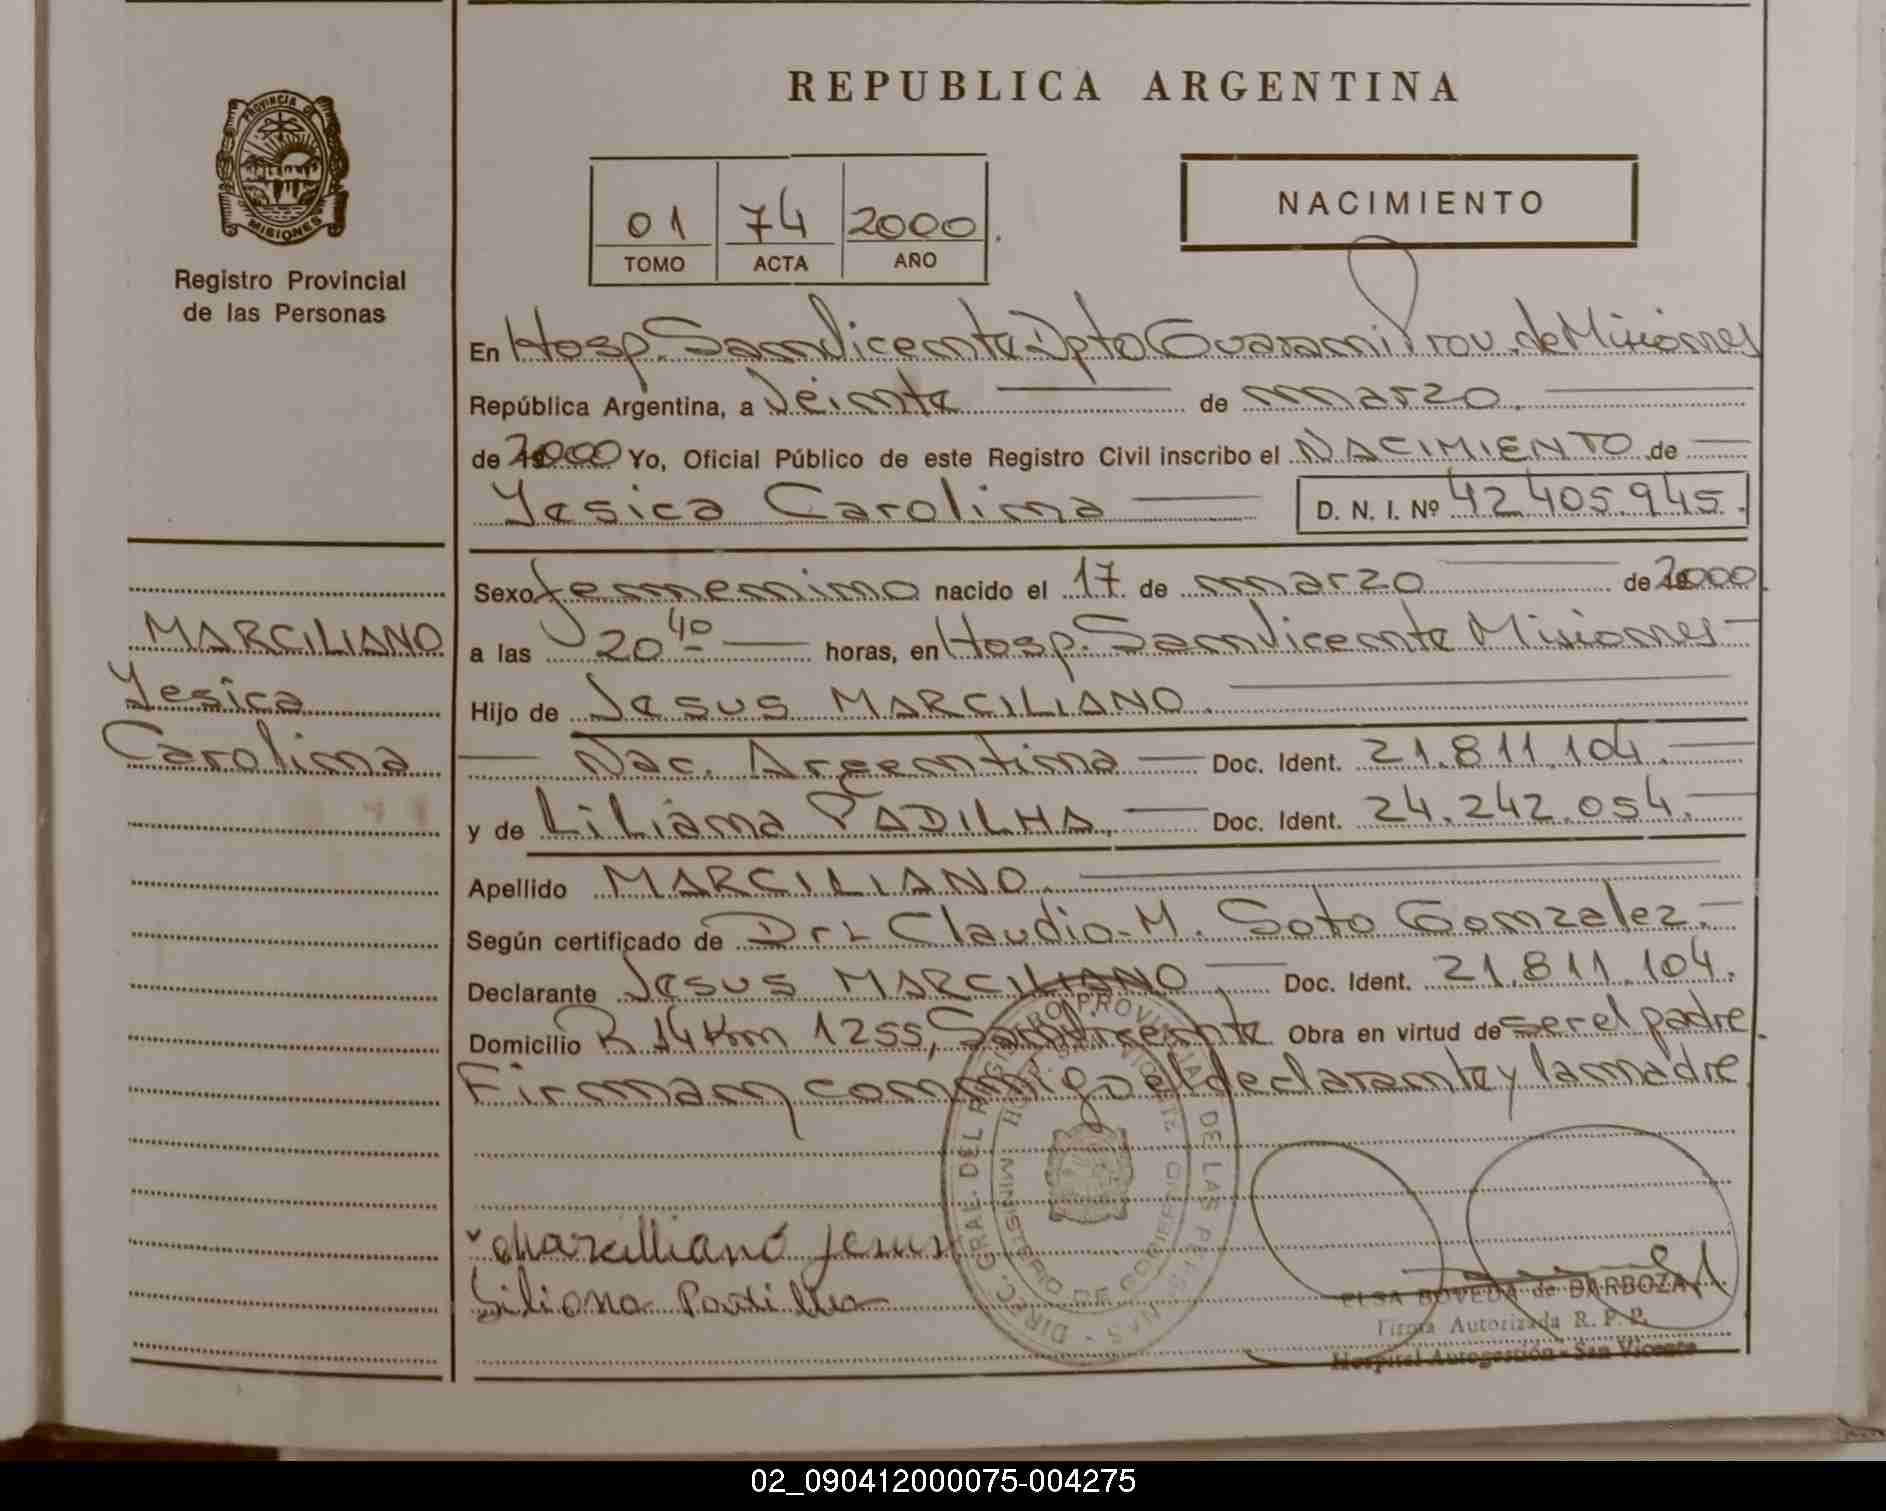 REPUBLICA ARGENTINA
PROVINCIA DE
MISIONES
Registro Provincial
de las Personas
01 74 2000
TOMO ACTA AÑO
NACIMIENTO
En Hosp. San Vicente Dpto Guarani Prov. de Misiones
República Argentina, a Veinte de marzo.
de 2000 Yo, Oficial Público de este Registro Civil inscribo el NACIMIENTO de
Yesica Carolina D. N. I. Nº 42.405.945.
Sexo femenino nacido el 17 de marzo de 2000
a las 20 40 horas, en Hosp. San Vicente Misiones
Hijo de Jesus MARCILIANO.
Nac. Argentina Doc. Ident. 21.811.104.
y de Liliana PADILHA, Doc. Ident. 24.242.054.
Apellido MARCILIANO.
Según certificado de Dr. Claudio M. Soto Gonzalez.
Declarante Jesus MARCILIANO, Doc. Ident. 21.811.104.
Domicilio R 14 Km 1255, San Vicente Obra en virtud de ser el padre.
Firman conmigo el declarante y la madre.
MARCILIANO
Yesica
Carolina
Marcilliano Jesus
Liliana Padilha
DIREC. GRAL. DEL REGISTRO PROVINCIAL DE LAS PERSONAS
HOSP. SAN VICENTE
MINISTERIO DE GOBIERNO
ELSA BOVEDA de BARBOZA
Firma Autorizada R. P. P.
Hospital Autogestión - San Vicente
02_090412000075-004275